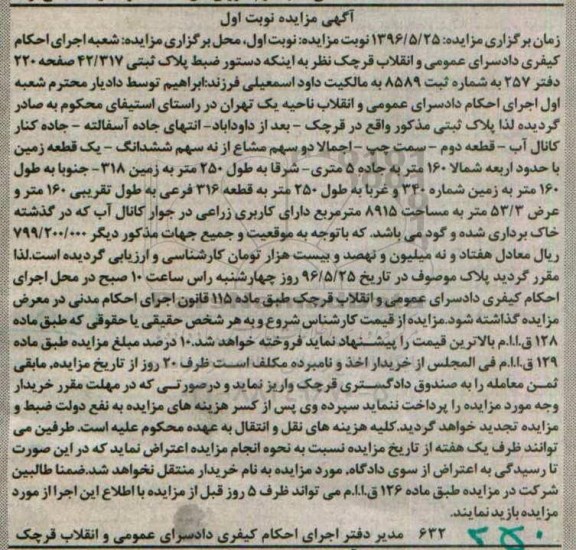 آگهی مزایده نوبت اول
زمان برگزاری مزایده: ۱۳۹۶/۵/۲۵ نوبت مزایده: نوبت اول، محل برگزاری مزایده: شعبه اجرای احکام
کیفری دادسرای عمومی و انقلاب قرچک نظر به اینکه دستور ضبط پلاک ثبتی ۴۲/۳۱۷ صفحه ۲۲۰
دفتر ۲۵۷ به شماره ثبت ۸۵۸۹ به مالکیت داود اسمعیلی فرزند: ابراهیم توسط دادیار محترم شعبه
اول اجرای احکام دادسرای عمومی و انقلاب ناحیه یک تهران در راستای استیفای محکوم به صادر
گردیده لذا پلاک ثبتی مذکور واقع در قرچک - بعد از داوداباد- انتهای جاده آسفالته - جاده کنار
کانال آب - قطعه دوم - سمت چپ - اجمالا دو سهم مشاع از نه سهم ششدانگ - یک قطعه زمین
با حدود اربعه شمالا ۱۶۰ متر به جاده ۵ متری- شرقا به طول ۲۵۰ متر به زمین ۳۱۸- جنوبا به طول
۱۶۰ متر به زمین شماره ۳۴۰ و غربا به طول ۲۵۰ متر به قطعه ۳۱۶ فرعی به طول تقریبی ۱۶۰ متر و
عرض ۵۳/۳ متر به مساحت ۸۹۱۵ مترمربع دارای کاربری زراعی در جوار کانال آب که در گذشته
خاک برداری شده و گود می باشد. که باتوجه به موقعیت و جمیع جهات مذکور دیگر ۷۹۹/۲۰۰/۰۰۰
ریال معادل هفتاد و نه میلیون و نهصد و بیست هزار تومان کارشناسی و ارزیابی گردیده است.لذا
مقرر گردید پلاک موصوف در تاریخ ۹۶/۵/۲۵ روز چهارشنبه راس ساعت ۱۰ صبح در محل اجرای
احکام کیفری دادسرای عمومی و انقلاب قرچک طبق ماده ۱۱۵ قانون اجرای احکام مدنی در معرض
مزایده گذاشته شود.مزایده از قیمت کارشناس شروع و به هر شخص حقیقی یا حقوقی که طبق ماده
۱۲۸ ق.ا.ا.م بالاترین قیمت را پیشنهاد نماید فروخته خواهد شد.۱۰ درصد مبلغ مزایده طبق ماده
۱۲۹ ق.ا.ا.م فی المجلس از خریدار اخذ و نامبرده مکلف است ظرف ۲۰ روز از تاریخ مزایده, مابقی
ثمن معامله را به صندوق دادگستری قرچک واریز نماید و درصورتی که در مهلت مقرر خریدار
وجه مورد مزایده را پرداخت ننماید سپرده وی پس از کسر هزینه های مزایده به نفع دولت ضبط و
مزایده تجدید خواهد گردید.کلیه هزینه های نقل و انتقال به عهده محکوم علیه است. طرفین می
توانند ظرف یک هفته از تاریخ مزایده نسبت به نحوه انجام مزایده اعتراض نماید که در این صورت
تا رسیدگی به اعتراض از سوی دادگاه, مورد مزایده به نام خریدار منتقل نخواهد شد.ضمنا طالبین
شرکت در مزایده طبق ماده ۱۲۶ ق.ا.ا.م می تواند ظرف ۵ روز قبل از مزایده با اطلاع این اجرا از مورد
مزایده بازدید نمایند.
۶۳۲ مدیر دفتر اجرای احکام کیفری دادسرای عمومی و انقلاب قرچک